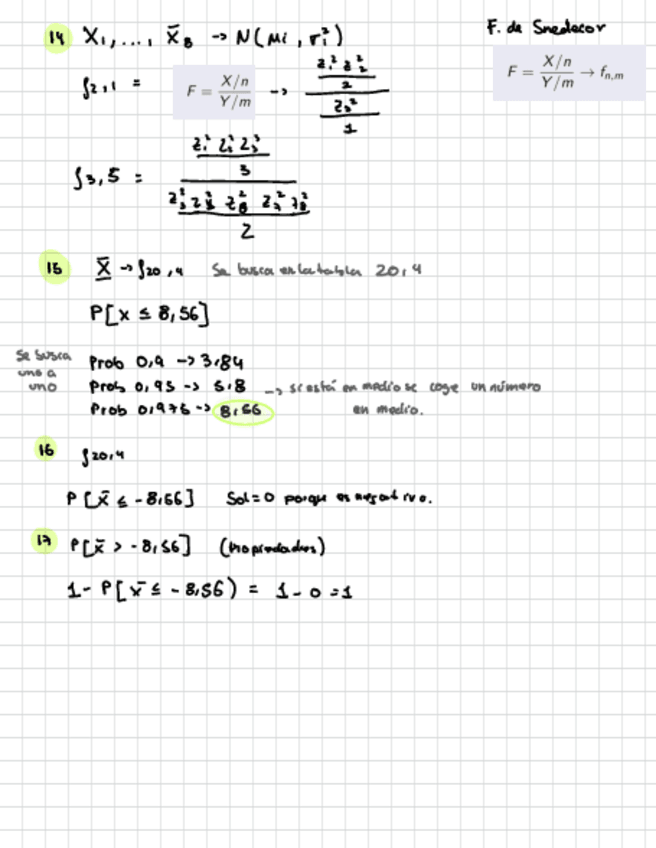 14 X₁, ..., X̄₈ → N(Mi, σi²)
F. de Snedecor
F = X/n / Y/m → fn,m
f2,1 = F = X/n / Y/m → z₁² z₂² / 2 / z₃² / 1
f3,5 = z₁² z₂² z₃² / 3 / z₇² z₈² / 2
15 X → f20,4 Se busca en la tabla 20,4
P[x ≤ 8,56]
Se busca uno a uno
Prob 0,9 → 3.84
Prob 0,95 → 5.8 → si está en medio se coge un número en medio.
Prob 0,975 → 8,56
16 f20,4
P[x̄ ≤ -8,56] Sol=0 porque es negativo.
17 P[x̄ > -8,56] (Propiedades)
1- P[x̄ ≤ -8,56) = 1-0=1